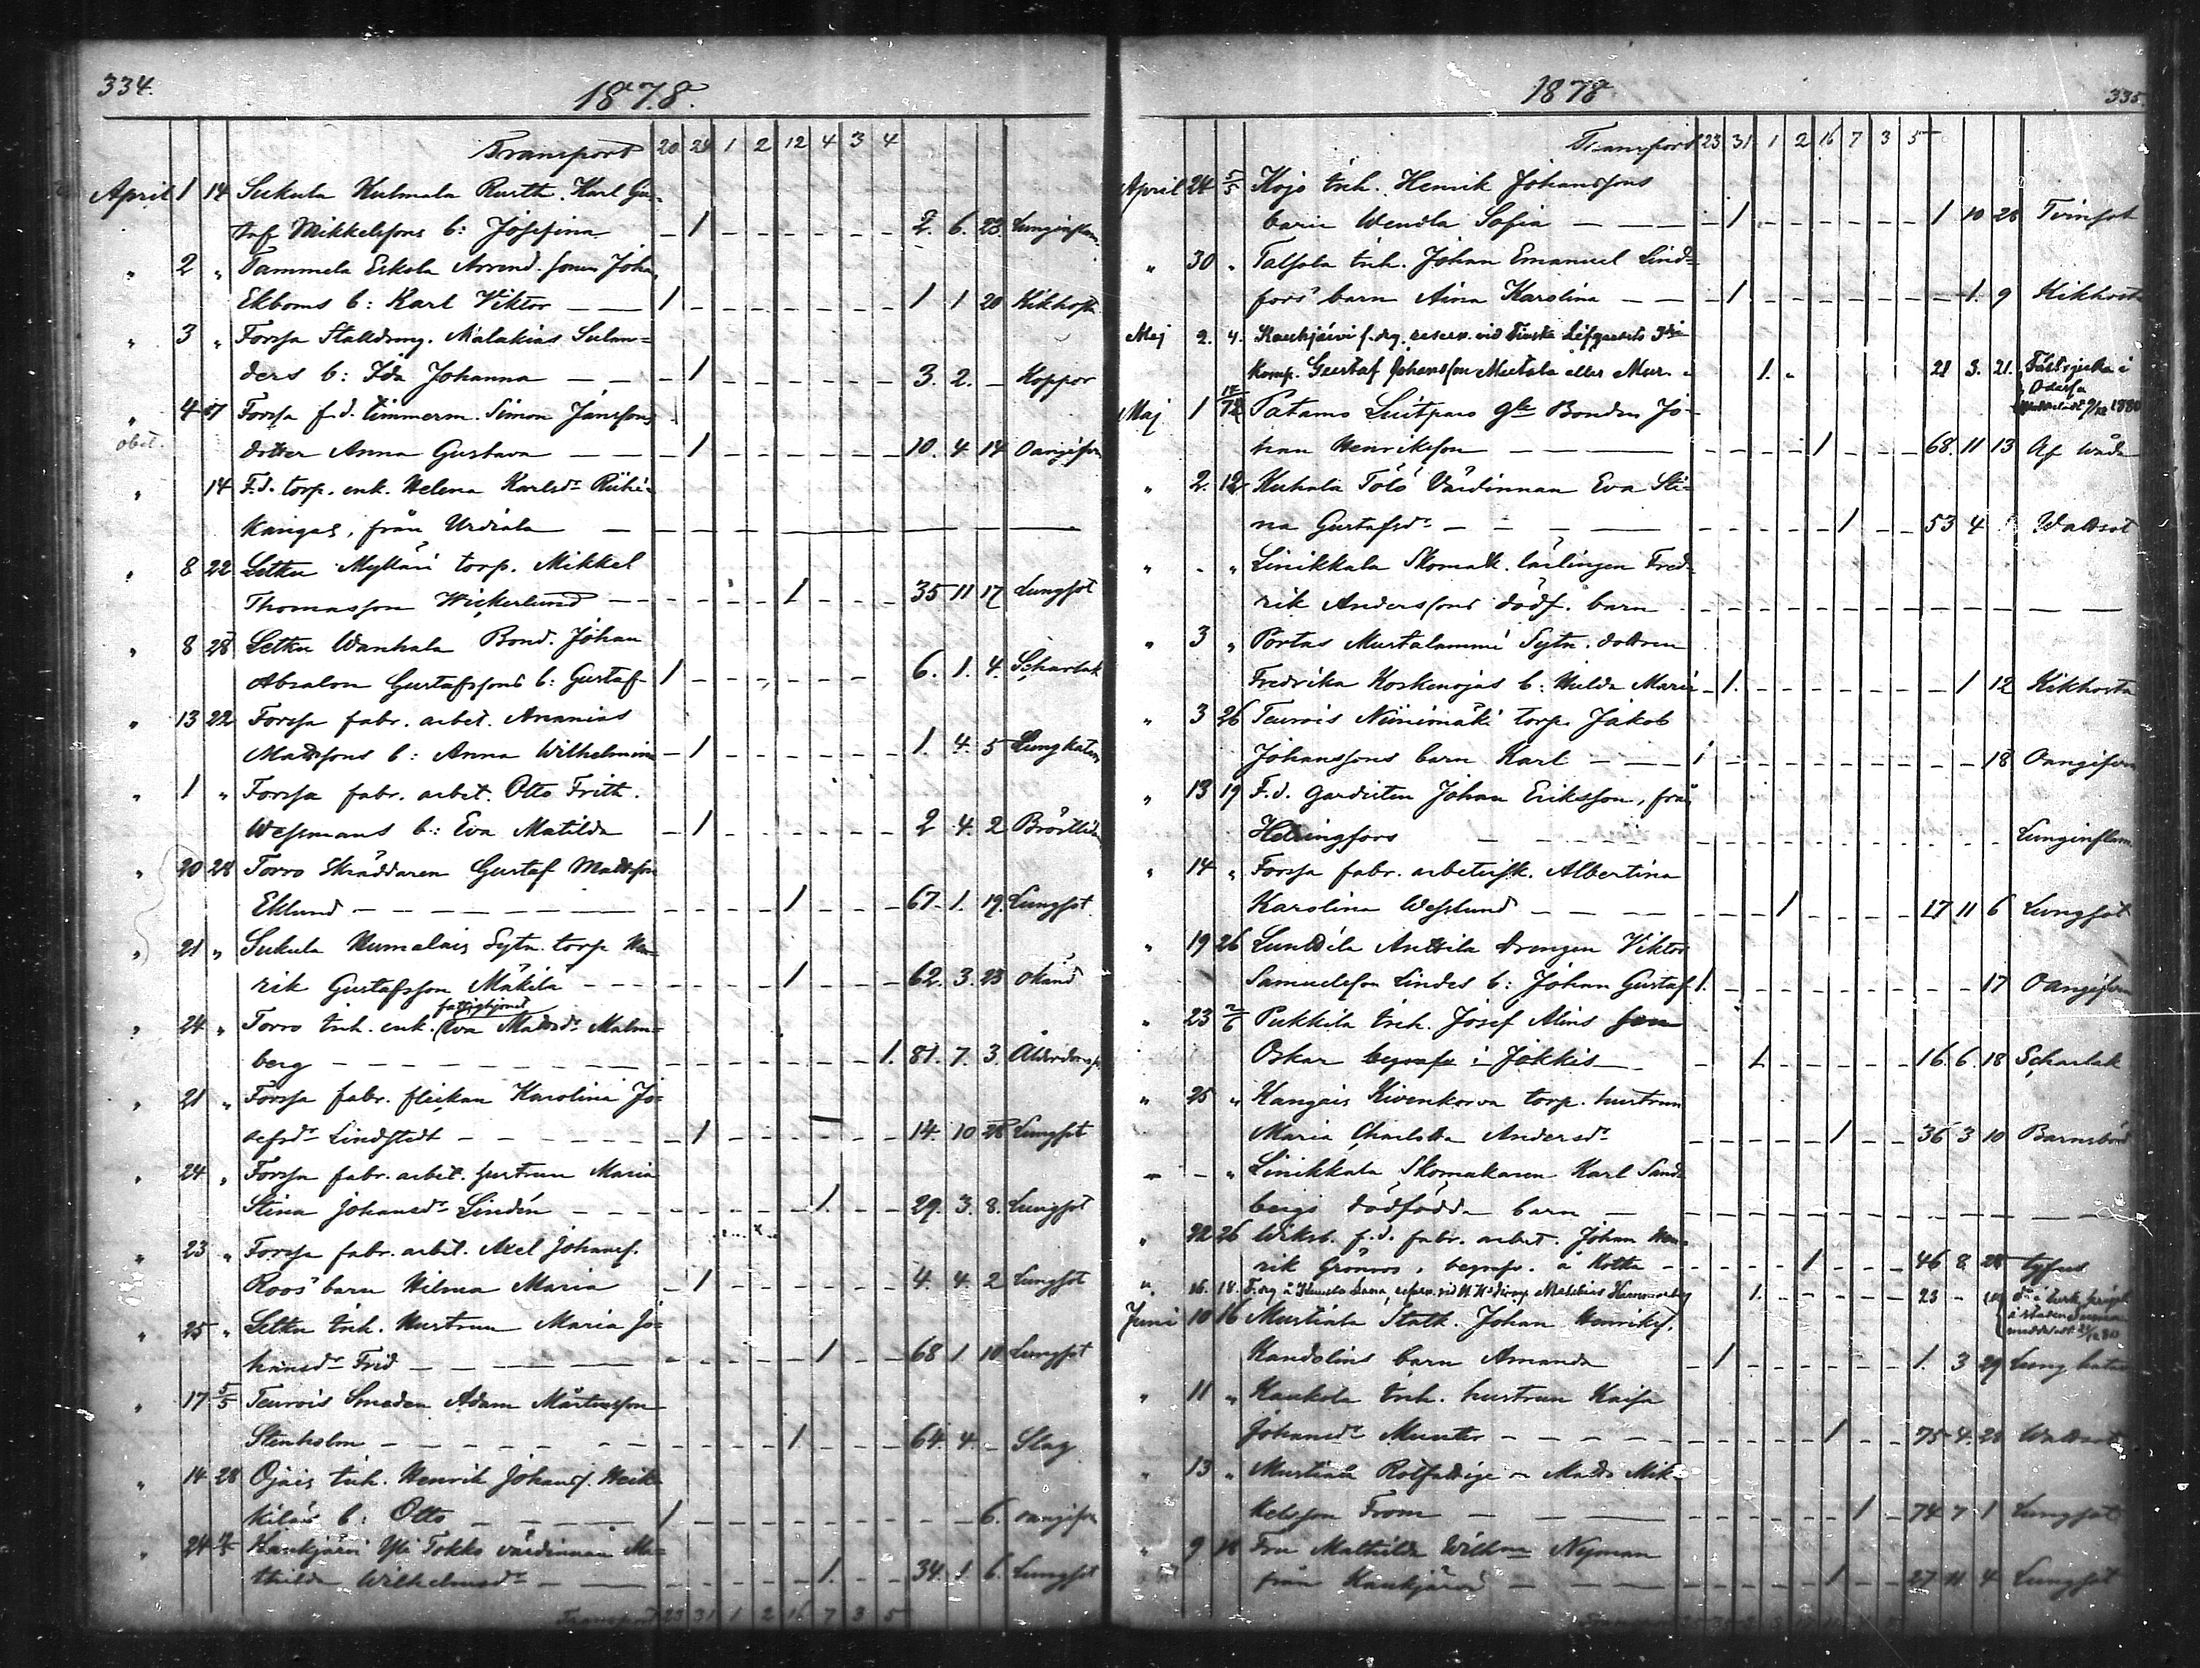 334.
1878.
Transport 20 29 1 2 12 4 3 4
April 1 14 Sukula Kulmala Rusth. Karl Gu-
staf Mikkelssons b: Josefina – 1 – – – – – – 2. 6. 23. Lunginflam.
" 2 " Tammela Eskola Arrend. sonen Joh.
Ekboms b: Karl Viktor 1 – – – – – – – 1 1 20 Kikhosta
" 3 " Forssa Stalldräng. Malakias Sulan-
ders b: Ida Johanna – 1 – – – – – – 3. 2. – Koppor
" 4 Forssa f.d. timmerm. Simon Jansons
obet.
dotter Anna Gustava – 1 – – – – – – 10. 4. 14 Oangifven
" 14 F.d. torp. enk. Helena Karlsdr Riihi-
kangas, från Urdiala
" 8 22 Letku Mylläri torp. Mikkel
Thomasson Wickerlund – – – – 1 – – – 35 11 17 Lungsot
" 8 28 Letku Wanhala Bond. Johan
Absalon Gustafssons b: Gustaf 1 – – – – – – – 6. 1. 4. Scharlak
" 13 22 Forssa fabr. arbet. Ananias
Mattssons b: Anna Wilhelmina – 1 – – – – – – 1. 4. 5 Lungkatarr
" 1 " Forssa fabr. arbet. Otto Frith.
Wessmans b: Eva Matilda – 1 – – – – – – 2 4. 2
" 20 28 Torro Skräddaren Gustaf Mattsson
Eklund – – – – 1 – – – 67. 1. 19. Lungsot
" 21 " Sukula Humalais Sytn. torp Hen-
rik Gustafsson Mäkilä – – – – 1 – – – 62. 3. 23 Okänd
fattighjonet
" 24 " Torro inh. enk. Eva Mattsdr Malm-
berg – – – – – – – 1. 81. 7. 3. Ålderdomsv
" 21 " Forssa fabr. flickan Karolina Jo-
sefsdr Lindstedt – 1 – – – – – – 14. 10 28 Lungsot
" 24 " Forssa fabr. arbet. hustrun Maria
Stina Johansdr Lindén – – – – – 1. – – 29. 3. 8. Lungsot
" 23 " Forssa fabr. arbet. Axel Johanss.
Roos' barn Hilma Maria – 1 – – – – – – 4. 4. 2 Lungsot
" 25 " Letku inh. Hustrun Maria Jo-
hansdr Frid – – – – – 1 – – 68 1 10 Lungsot
" 17 5/5 Teurois Smeden Adam Mårtensson
Stenholm – – – – 1. – – – 64. 4. – Slag
" 14 28 Ojais inh. Henrik Johanss. Heik-
kiläs b: Otto 1 – – – – – – – 6. Oangifven
" 24 Kaukjärvi Yli Tokko värdinnan Ma-
thilda Wilhelmsdr – – – – – 1. – – 34. 1. 6. Lungsot
Transport 23 31 1 2 16 7 3 5
1878
335.
Transport 23 31 1 2 16 7 3 5
April 24 5/5 Kojo inh. Henrik Johanssons
barn Wendla Sofia – 1 – – – – – – 1 10 28 Tvinsot
" 30 " Talsola inh. Johan Emanuel Lind-
fors' barn Aina Karolina – 1 – – – – – – – 1. 9 Kikhosta
Maj 2. 4. Kaukjärvi f. drg. reserv. vid Finska Lifgardets 3dje
komp. Gustaf Johansson Mustala eller Mur- 1. 21 3. 21. Fältsjuka i
Odessa
meddeladt 9/12 1880
Maj 1 12 Patamo Suitpars gle Bonden Jo-
han Henriksson – – – – 1 – – – 68. 11 13 Af våda
" 2. 12 Kuhala Tölö Värdinnan Eva Sti-
na Gustafsdr – – – – – 1 – – 53 4 Wattsot
" - " Linikkala Skomak. lärlingen Fred-
rik Anderssons dödf. barn – – – – – – – –
" 3 " Portas Mustalammi Sytn. dottren
Fredrika Koskenojas b: Hulda Maria – 1. – – – – – – – 1 12 Kikhosta
" 3 26 Teurois Niinimäki torp. Jakob
Johanssons barn Karl 1 – – – – – – – – – 18 Oangifven
" 13 19 F.d. Gardisten Johan Eriksson, från
Helsingfors – – – – – – – – Lunginflam.
" 14 " Forssa fabr. arbetersk. Albertina
Karolina Wesslund – – – 1 – – – – 17 11 6 Lungsot
" 19 26 Lunttila Anttila drengen Viktor
Samuelsson Lindes b: Johan Gustaf 1. – – – – – – – – – 17 Oangifven
" 23 2/6 Pukkila inh. Josef Alins son
Oskar begrafv. i Jokkis – – 1. – – – – – 16. 6. 18 Scharlak
" 25 " Kangais Kivenkorva torp. hustrun
Maria Charlotta Andersdr – – – – – 1 – – 36 3 10 Barnsbörd
– – " Linikkala Skomakaren Karl Sand-
bergs dödfödda barn – – – – – – – –
" 22 26 Wiksb. f.d. fabr. arbet. Johan Hen-
rik Grönroos, begrafv. å Kotka – – – – 1 – – – 46 8 28 tyfus
" 16. 18. 1. 23 –
meddeladt
Juni 10 16 Mustiala Statk. Johan Henrikss.
Kandolins barn Amanda – 1 – – – – – – 1. 3 29 Lung katarr
" 11 " Kaukola inh. hustrun Kaisa
Johansdr Munter – – – – – 1 – – 75 4. 28 Wattsot
" 13 " Mustiala Rotfattige Matts Mik-
kelsson From – – – – – – 1 – 74 7 1 Lungsot
" 9 16 Fru Mathilda Wilhma Nyman
från Kaukjärvi – – – – – 1 – – 27 11 4 Lungsot